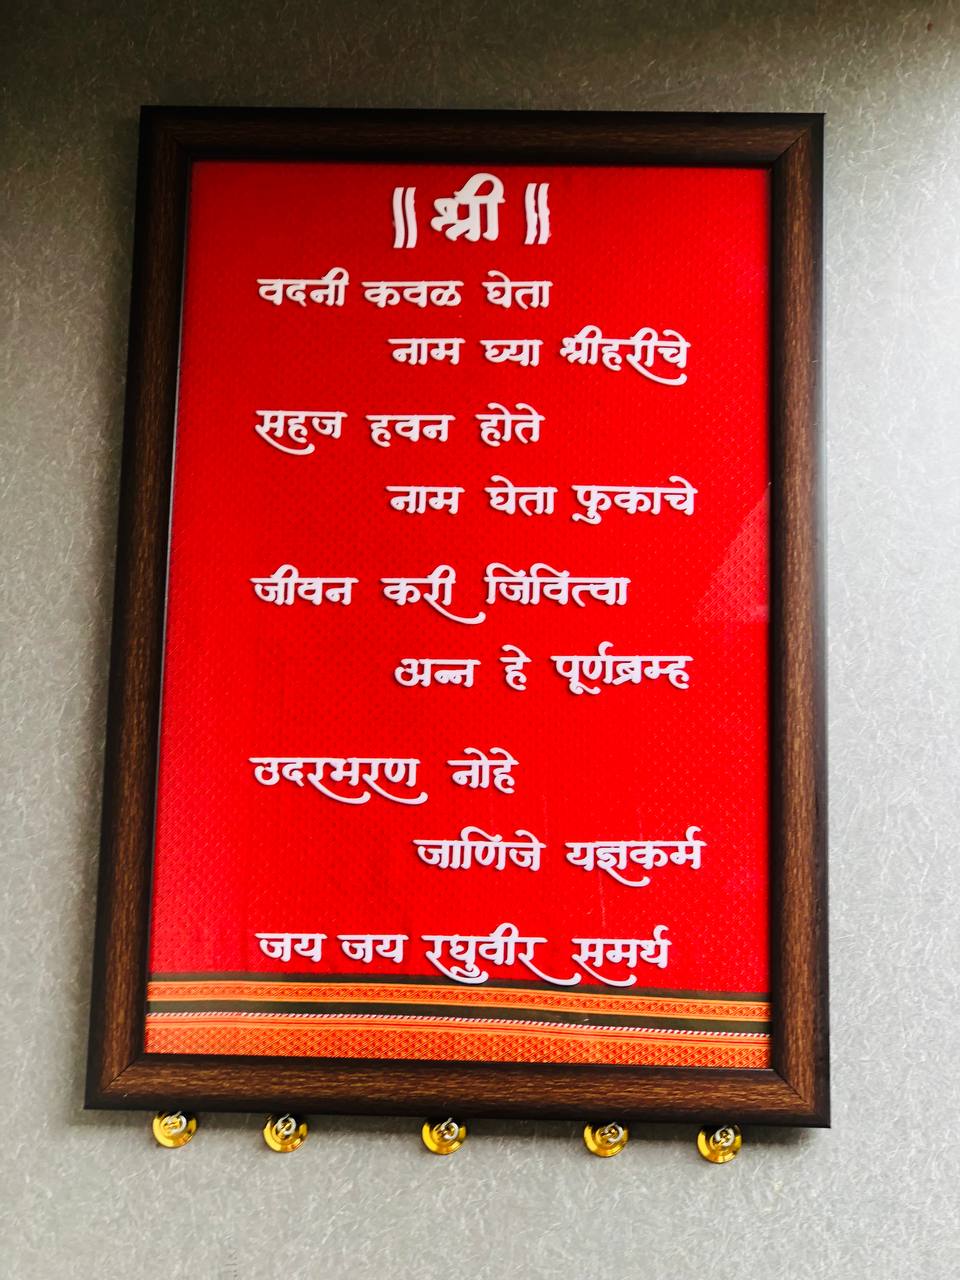 ॥ श्री ॥
वदनी कवळ घेता
नाम घ्या श्रीहरीचे
सहज हवन होते
नाम घेता फुकाचे
जीवन करी जिंवित्वा
अन्न हे पूर्णब्रम्ह
उदरभरण नोहे
जाणिंजे यज्ञकर्म
जय जय रघुवीर समर्थ